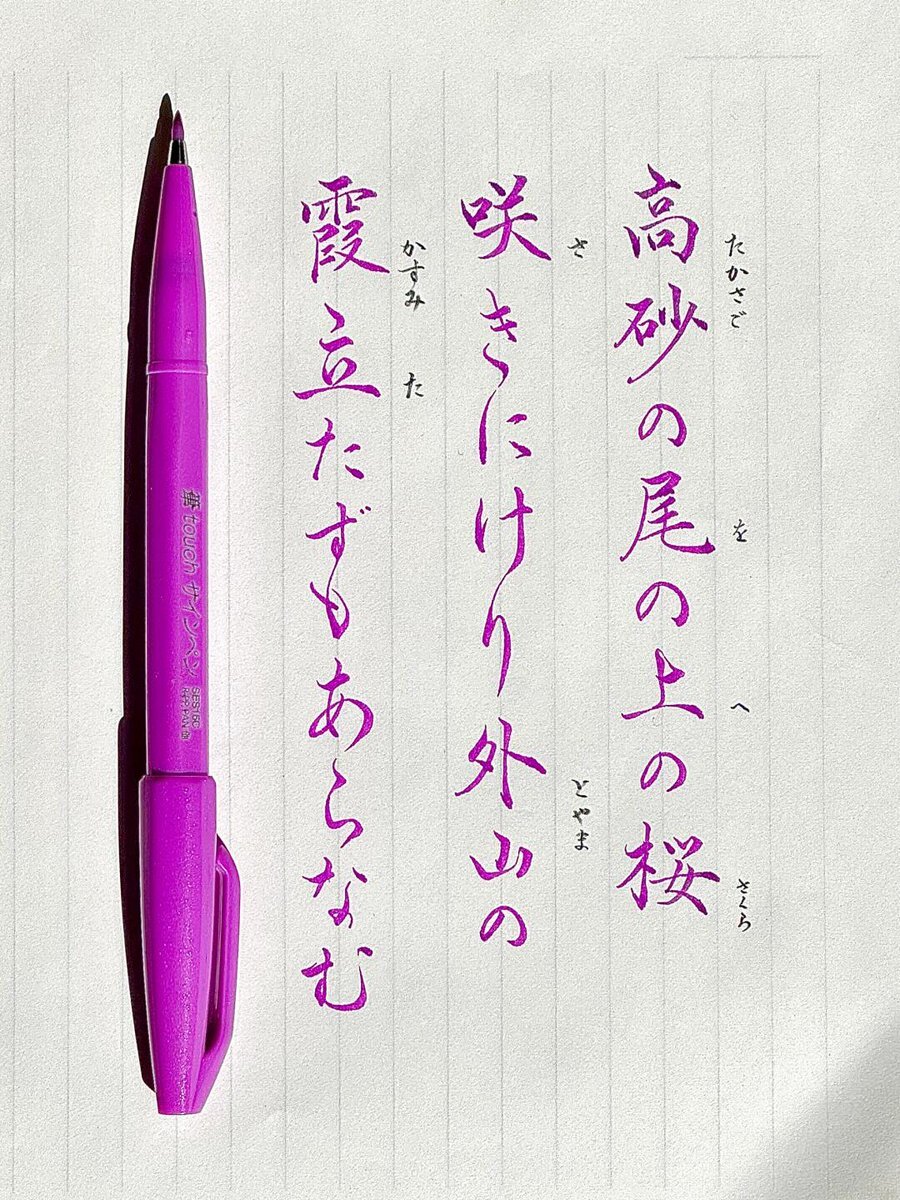 高砂の尾の上の桜
たかさご を へ さくら
咲きにけり外山の
さ とやま
霞立たずもあらなむ
かすみ た
筆touch サインペン
SES15C